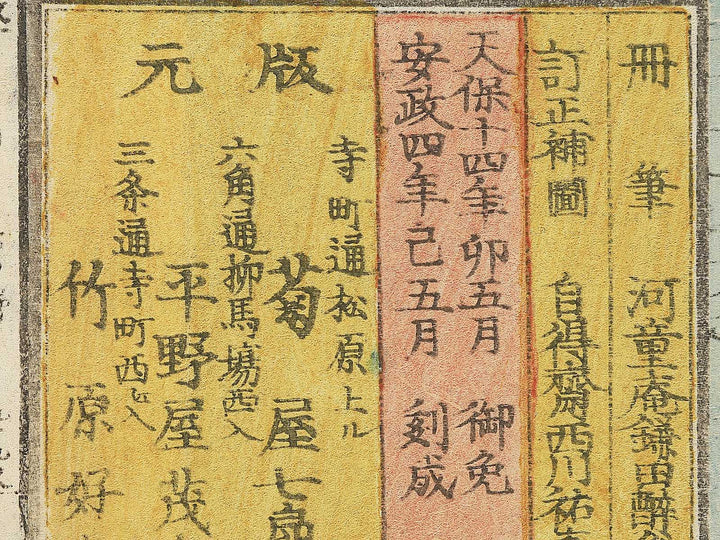 冊筆 河童庵鎌田酔
訂正補圖 自得齋西川祐
天保十四年卯五月 御免
安政四年己五月 刻成
版元
寺町通松原上ル
菊屋七郎
六角通柳馬場西入
平野屋茂
三条通寺町西入
竹原好